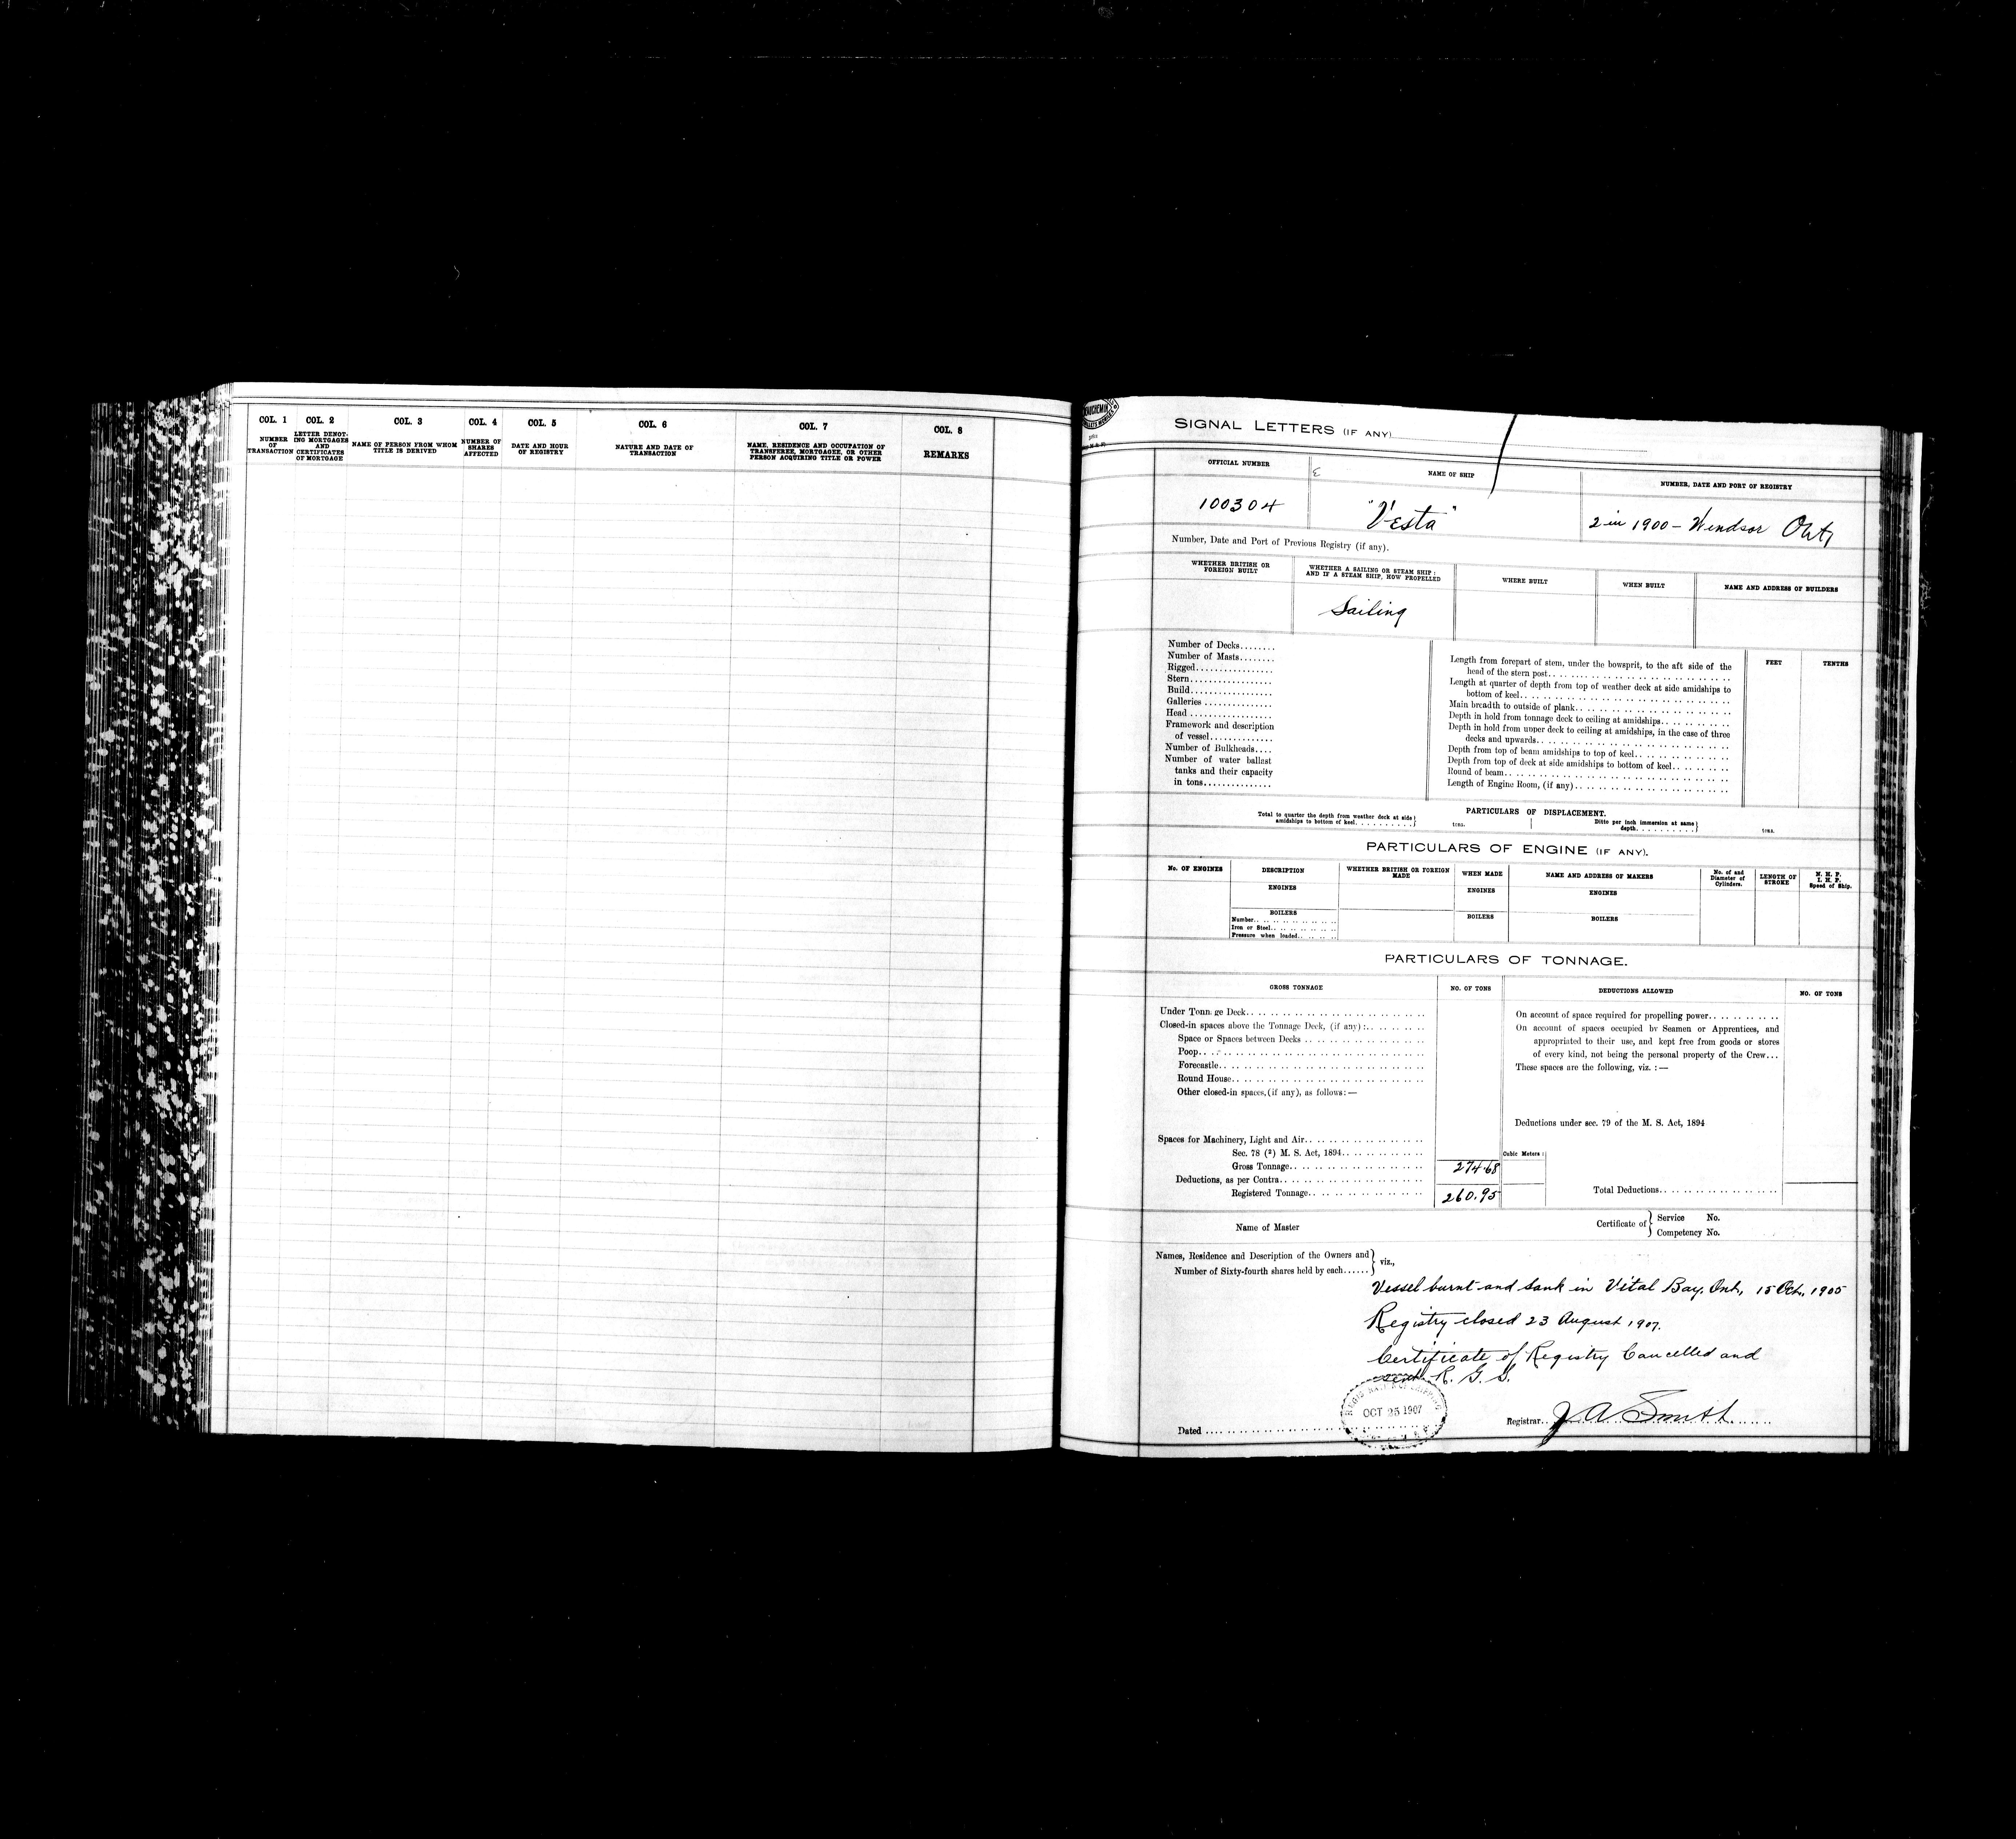 COL. 1 COL. 2 COL. 3 COL. 4 COL. 5 COL. 6 COL. 7 COL. 8
NUMBER OF TRANSACTION
LETTER DENOT-ING MORTGAGES AND CERTIFICATES OF MORTGAGE
NAME OF PERSON FROM WHOM TITLE IS DERIVED
NUMBER OF SHARES AFFECTED
DATE AND HOUR OF REGISTRY
NATURE AND DATE OF TRANSACTION
NAME, RESIDENCE AND OCCUPATION OF TRANSFEREE, MORTGAGEE, OR OTHER PERSON ACQUIRING TITLE OR POWER
REMARKS
SIGNAL LETTERS (IF ANY)
OFFICIAL NUMBER NAME OF SHIP NUMBER, DATE AND PORT OF REGISTRY
100304 "Vesta" 2 in 1900 - Windsor Ont,
Number, Date and Port of Previous Registry (if any).
WHETHER BRITISH OR FOREIGN BUILT
WHETHER A SAILING OR STEAM SHIP: AND IF A STEAM SHIP, HOW PROPELLED
WHERE BUILT WHEN BUILT NAME AND ADDRESS OF BUILDERS
Sailing
Number of Decks........
Number of Masts........
Rigged................
Stern..................
Build..................
Galleries ...............
Head ..................
Framework and description
of vessel..............
Number of Bulkheads....
Number of water ballast
tanks and their capacity
in tons...............
FEET TENTHS
Length from forepart of stem, under the bowsprit, to the aft side of the
head of the stern post..
Length at quarter of depth from top of weather deck at side amidships to
bottom of keel..
Main breadth to outside of plank..
Depth in hold from tonnage deck to ceiling at amidships..
Depth in hold from upper deck to ceiling at amidships, in the case of three
decks and upwards..
Depth from top of beam amidships to top of keel..
Depth from top of deck at side amidships to bottom of keel..
Round of beam..
Length of Engine Room, (if any)..
PARTICULARS OF DISPLACEMENT.
Total to quarter the depth from weather deck at side
amidships to bottom of keel.......... tons.
Ditto per inch immersion at same
depth.......... tons.
PARTICULARS OF ENGINE (IF ANY).
No. OF ENGINES DESCRIPTION WHETHER BRITISH OR FOREIGN MADE WHEN MADE NAME AND ADDRESS OF MAKERS No. of and Diameter of Cylinders. LENGTH OF STROKE N. H. P. I. H. P. Speed of Ship.
ENGINES ENGINES ENGINES
BOILERS BOILERS BOILERS
Number..
Iron or Steel..
Pressure when loaded..
PARTICULARS OF TONNAGE.
GROSS TONNAGE NO. OF TONS DEDUCTIONS ALLOWED NO. OF TONS
Under Tonn. ge Deck..
Closed-in spaces above the Tonnage Deck, (if any):..
Space or Spaces between Decks ..
Poop..
Forecastle..
Round House..
Other closed-in spaces, (if any), as follows:—
Spaces for Machinery, Light and Air..
Sec. 78 (2) M. S. Act, 1894..
Gross Tonnage.. 274.68
Deductions, as per Contra..
Registered Tonnage.. 260.95
Cubic Meters:
On account of space required for propelling power..
On account of spaces occupied by Seamen or Apprentices, and
appropriated to their use, and kept free from goods or stores
of every kind, not being the personal property of the Crew...
These spaces are the following, viz. :—
Deductions under sec. 79 of the M. S. Act, 1894
Total Deductions..
Name of Master
Certificate of Service No.
Competency No.
Names, Residence and Description of the Owners and
Number of Sixty-fourth shares held by each...... viz.,
Vessel burnt and sank in Vital Bay. Ont, 15 Oct, 1905
Registry closed 23 August 1907.
Certificate of Registry Cancelled and
sent R. G. S.
OCT 25 1907
Dated ....
Registrar.. J A Smith